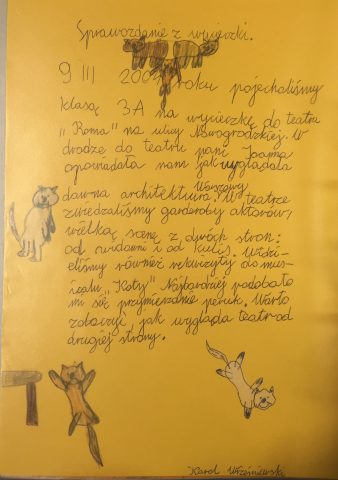 Sprawozdanie z wycieczki.
9 III 2004 roku pojechaliśmy
klasą 3A na wycieczkę do teatru
"Roma" na ulicy Nowogrodzkiej. W
drodze do teatru pani Joanna
opowiadała nam jak wyglądała
dawna architektura Warszawy. W teatrze
zwiedzaliśmy garderoby aktorów,
wielką scenę z dwóch stron:
od widowni i od kulis. Widzi-
eliśmy również rekwizyty do mus-
icalu "Koty". Najbardziej podobało
mi się przymierzanie peruk. Warto
zobaczyć, jak wygląda teatr od
drugiej strony.
Karol